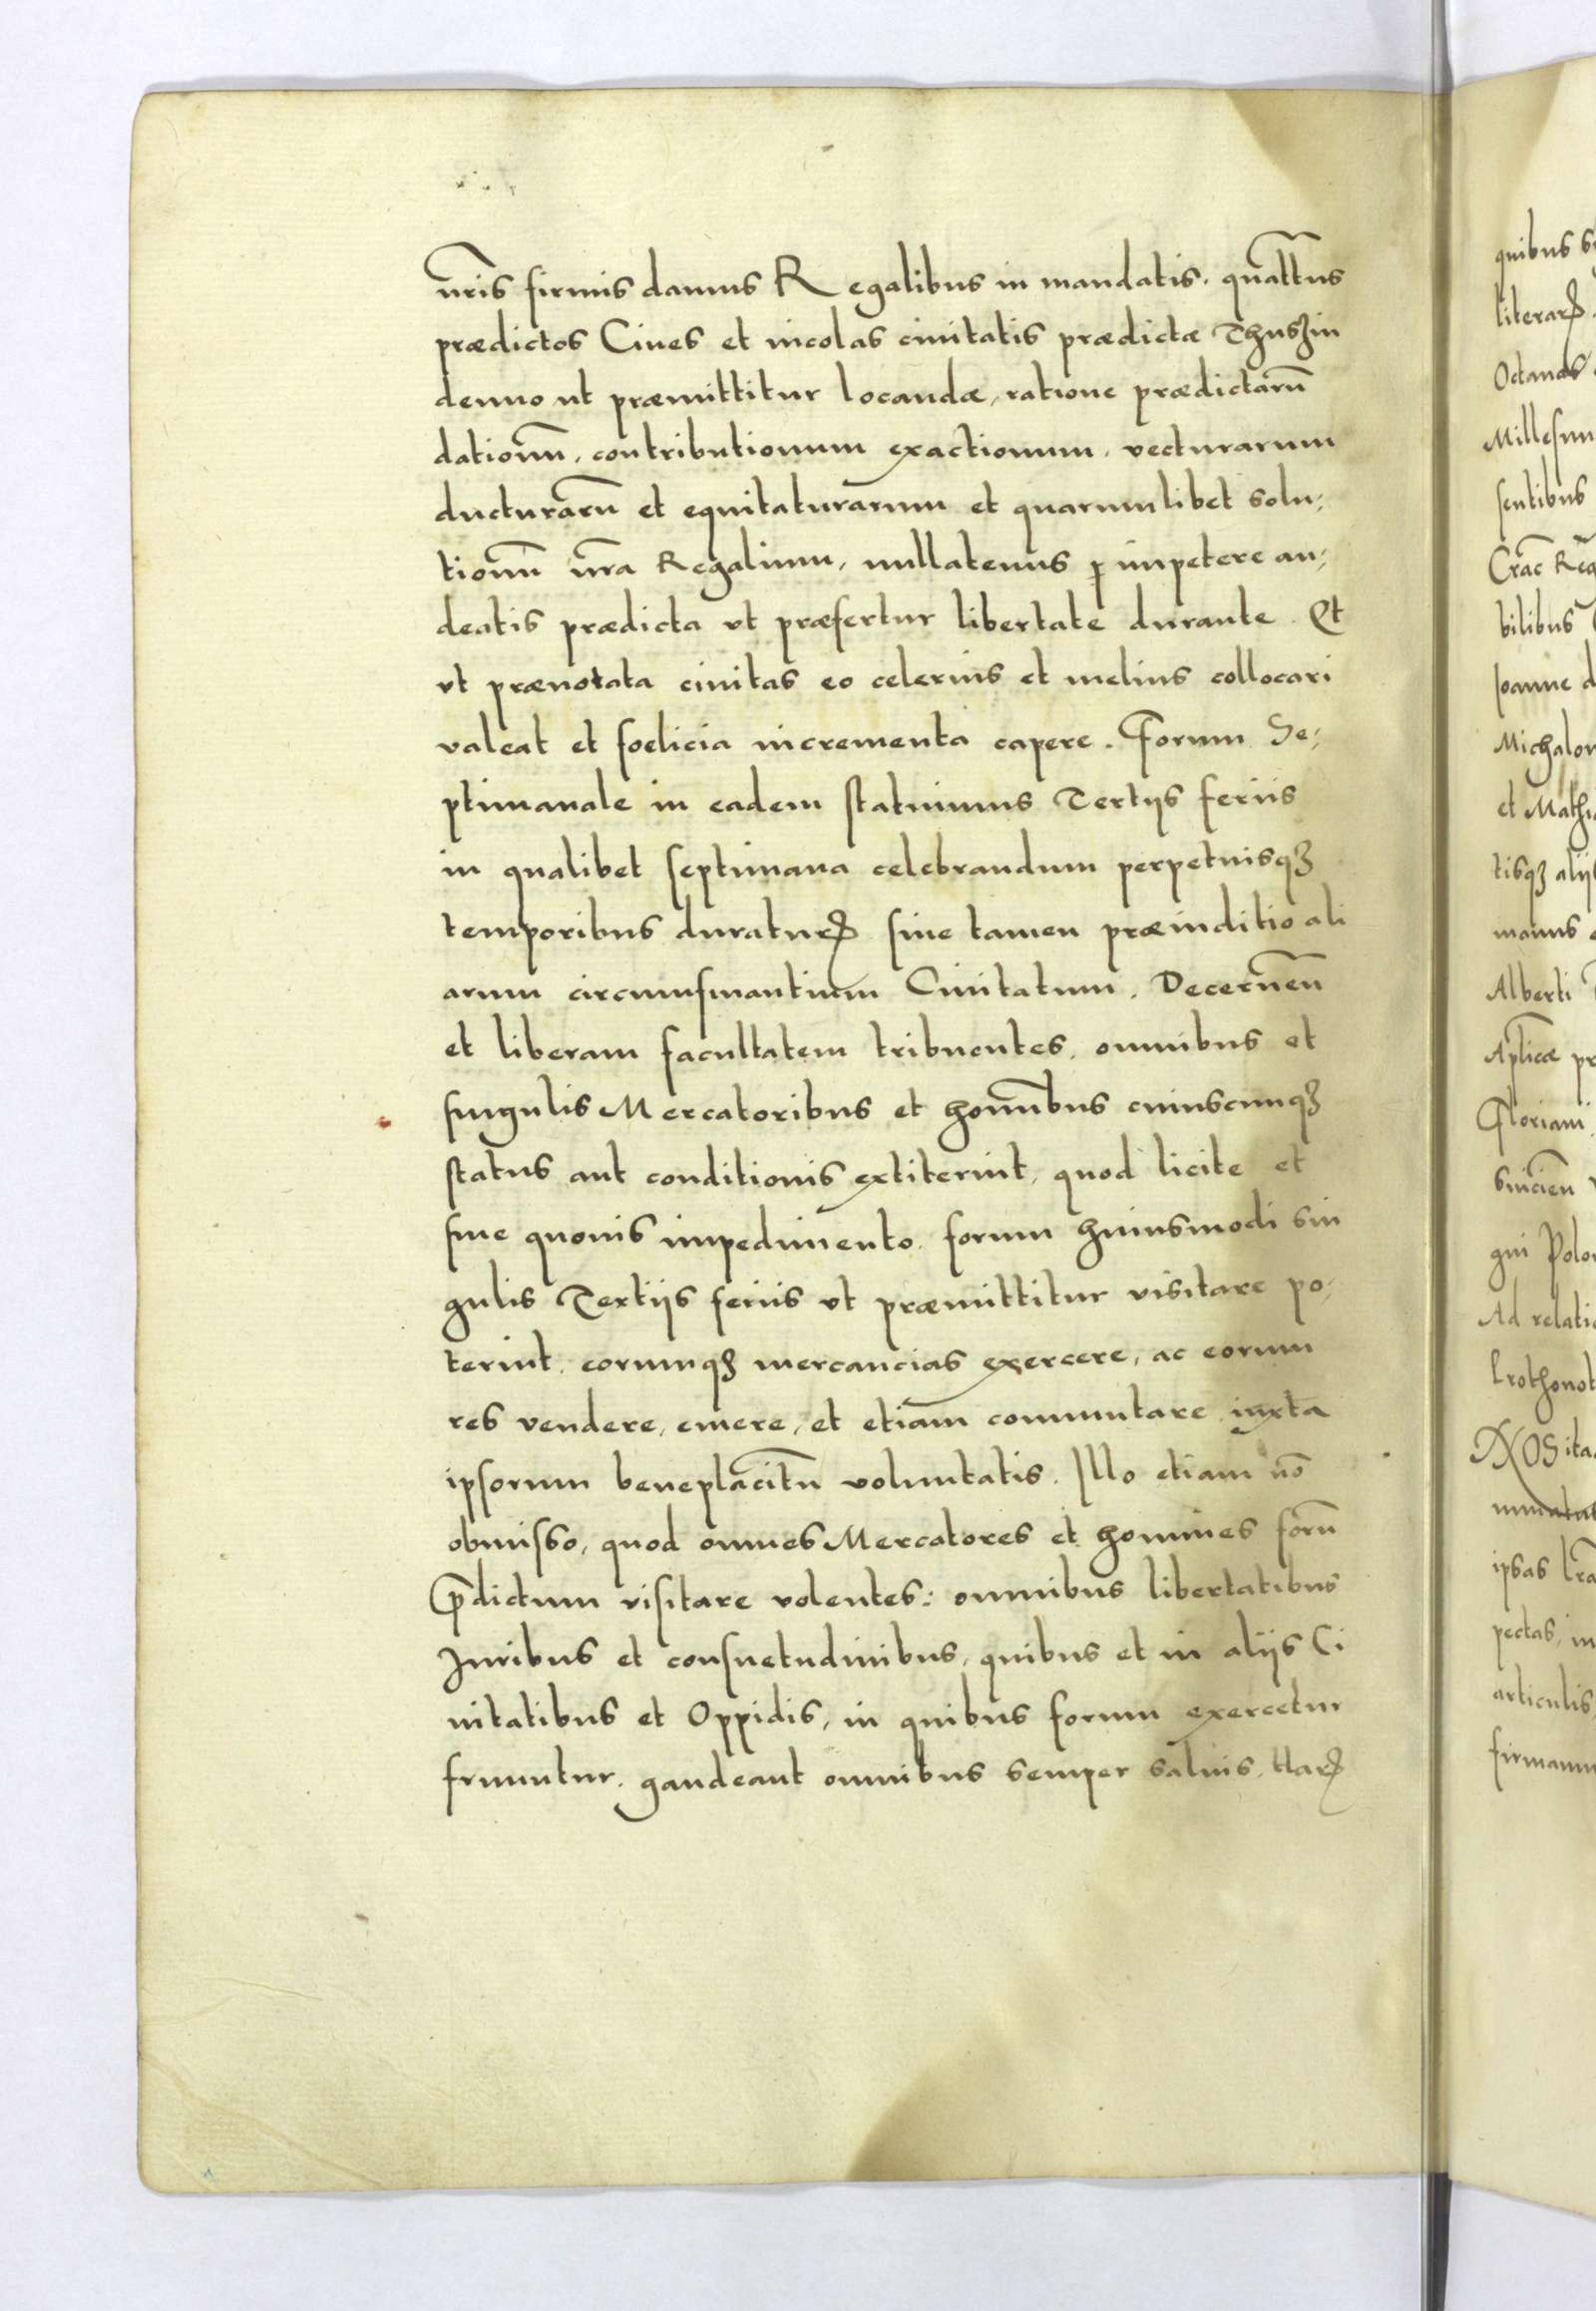 nr̃is firmis damus Regalibus in mandatis. quatt̃nus
prædictos Ciues et incolas ciuitatis prædictæ Thuszin
denuo ut præmittitur locandæ, ratione prædictarũ
dationũ, contributionum exactionum, vecturarum
ducturarũ et equitaturarum et quarumlibet solu,,
tionũ nr̃a Regalium, nullatenus ꝑ impetere au,,
deatis prædicta vt præfertur libertate durante. Et
vt prænotata ciuitas eo celerius et melius collocari
valeat et foelicia incrementa capere. Forum Se,,
ptimanale in eadem statuimus Tertijs feriis
in qualibet septimana celebrandum perpetuisqꝫ
temporibus duraturꝝ sine tamen præiuditio ali
arum circumsuantium Ciuitatum. Decernẽn
et liberam facultatem tribuentes, omnibus et
singulis Mercatoribus et homĩbus cuiuscunqꝫ
status aut conditionis extiterint, quod licite et
sine quouis impedimento. forum huiusmodi sin
gulis Tertijs feriis vt præmittitur visitare po,,
terint. eorumqꝫ mercancias exercere, ac eorum
res vendere, emere, et etiam commutare iuxta
ipsorum beneplacitũ voluntatis. Illo etiam nõ
obmisso, quod omnes Mercatores et homines forũ
p̃dictum visitare volentes: omnibus libertatibus
Juribus et consuetudinibus, quibus et in aliis Ci
uitatibus et Oppidis, in quibus forum exercetur
fruuntur. gaudeant omnibus semper saluis. Harꝝ
quibus
literarꝝ.
Octauas
Millesim
sentibus
Crac̃ Reg
bilibus
Joanne d
Michalon
et Mathi
tisqꝫ alijs
manus
Alberti
Ap̃licæ pr
Floriani
Sincieñ
gni Polon
Ad relatio
Prothonot
NOS ita
ipsas lr̃a
pectas, in
articulis
firmamu